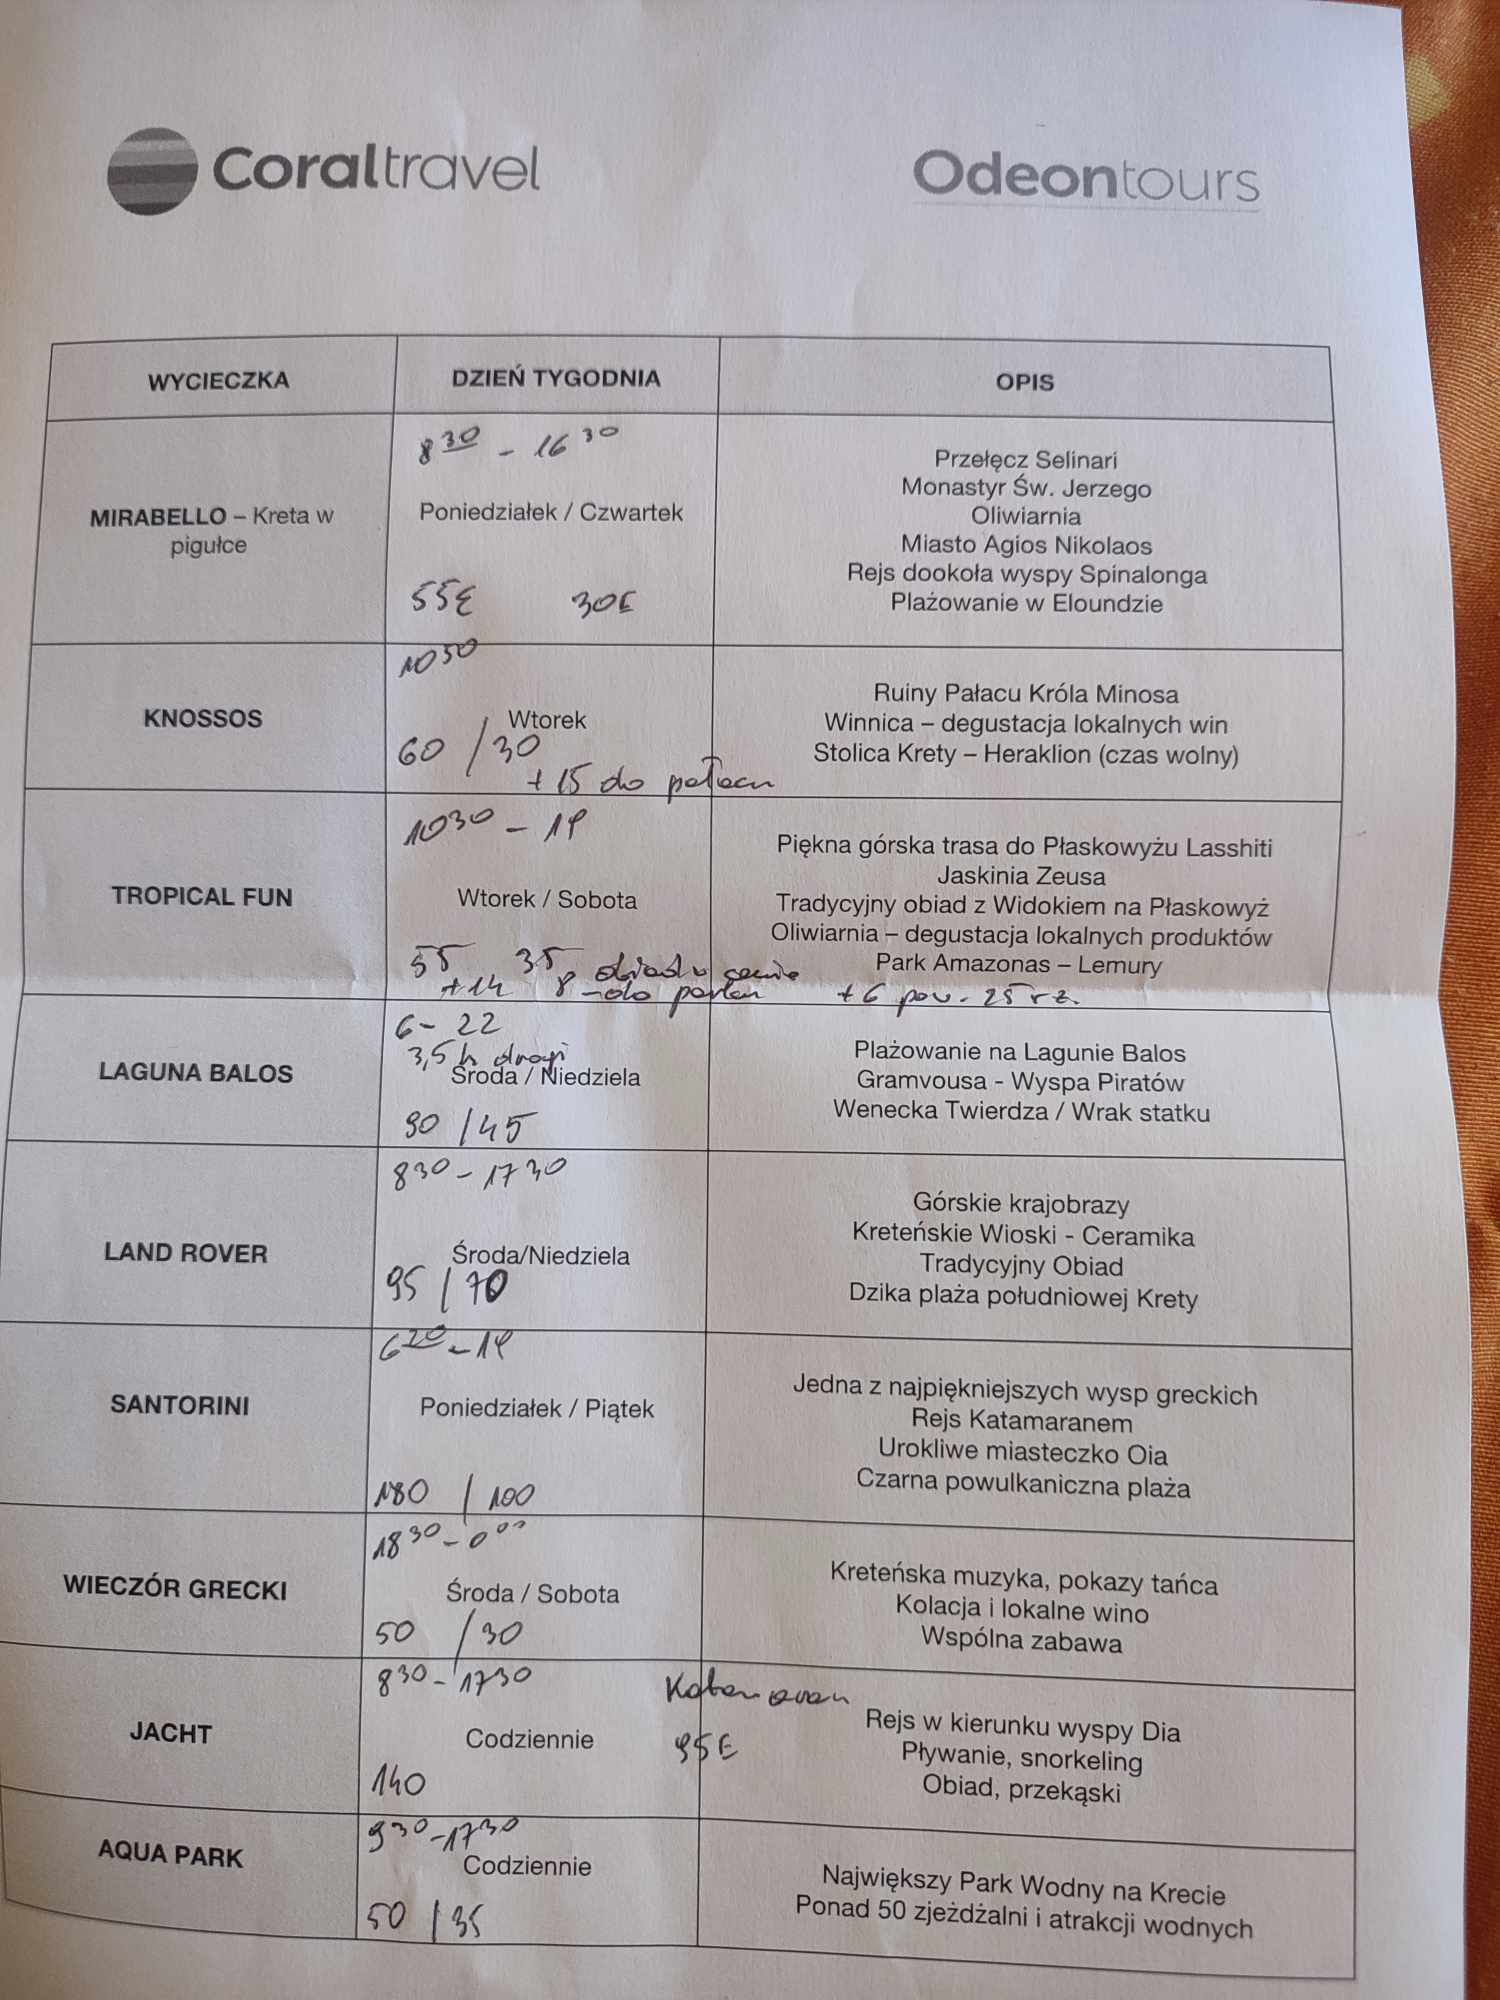 Coraltravel
Odeontours
WYCIECZKA
DZIEŃ TYGODNIA
OPIS
MIRABELLO – Kreta w
pigułce
8 30 - 16 30
Poniedziałek / Czwartek
55€ 30€
Przełęcz Selinari
Monastyr Św. Jerzego
Oliwiarnia
Miasto Agios Nikolaos
Rejs dookoła wyspy Spinalonga
Plażowanie w Eloundzie
KNOSSOS
Wtorek
60 / 30
+ 15 do pałacu
Ruiny Pałacu Króla Minosa
Winnica – degustacja lokalnych win
Stolica Krety – Heraklion (czas wolny)
TROPICAL FUN
10 30 - 19
Wtorek / Sobota
55 35 obiad w cenie
+14 8 -do parku + 6 pow. 25 r.ż.
Piękna górska trasa do Płaskowyżu Lasshiti
Jaskinia Zeusa
Tradycyjny obiad z Widokiem na Płaskowyż
Oliwiarnia – degustacja lokalnych produktów
Park Amazonas – Lemury
LAGUNA BALOS
6 - 22
3,5 h drogi
Środa / Niedziela
90 / 45
Plażowanie na Lagunie Balos
Gramvousa - Wyspa Piratów
Wenecka Twierdza / Wrak statku
LAND ROVER
8 30 - 17 30
Środa/Niedziela
95 / 70
Górskie krajobrazy
Kreteńskie Wioski - Ceramika
Tradycyjny Obiad
Dzika plaża południowej Krety
SANTORINI
6 20 - 19
Poniedziałek / Piątek
180 / 100
Jedna z najpiękniejszych wysp greckich
Rejs Katamaranem
Urokliwe miasteczko Oia
Czarna powulkaniczna plaża
WIECZÓR GRECKI
18 30 - 0 00
Środa / Sobota
50 / 30
Kreteńska muzyka, pokazy tańca
Kolacja i lokalne wino
Wspólna zabawa
JACHT
8 30 - 17 30
Codziennie
140
Katamaran
95€
Rejs w kierunku wyspy Dia
Pływanie, snorkeling
Obiad, przekąski
AQUA PARK
9 30 - 17 30
Codziennie
50 / 35
Największy Park Wodny na Krecie
Ponad 50 zjeżdżalni i atrakcji wodnych